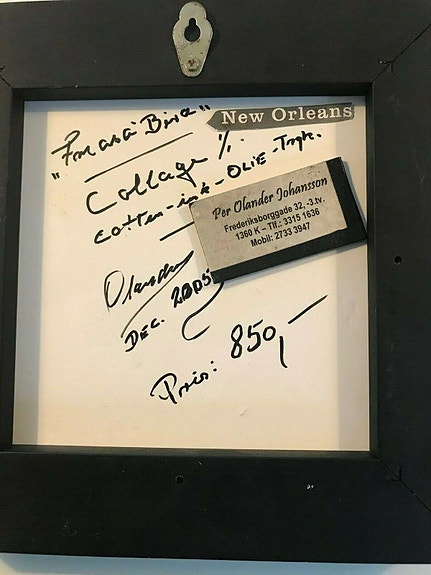 New Orleans
Collage %.
Cotten-ink-OLIE-Tryk.
Per Olander Johansson
Frederiksborggade 32, -3.tv.
1360 K – Tlf.: 3315 1636
Mobil: 2733 3947
Olander
DEC. 2005
Pris: 850,-